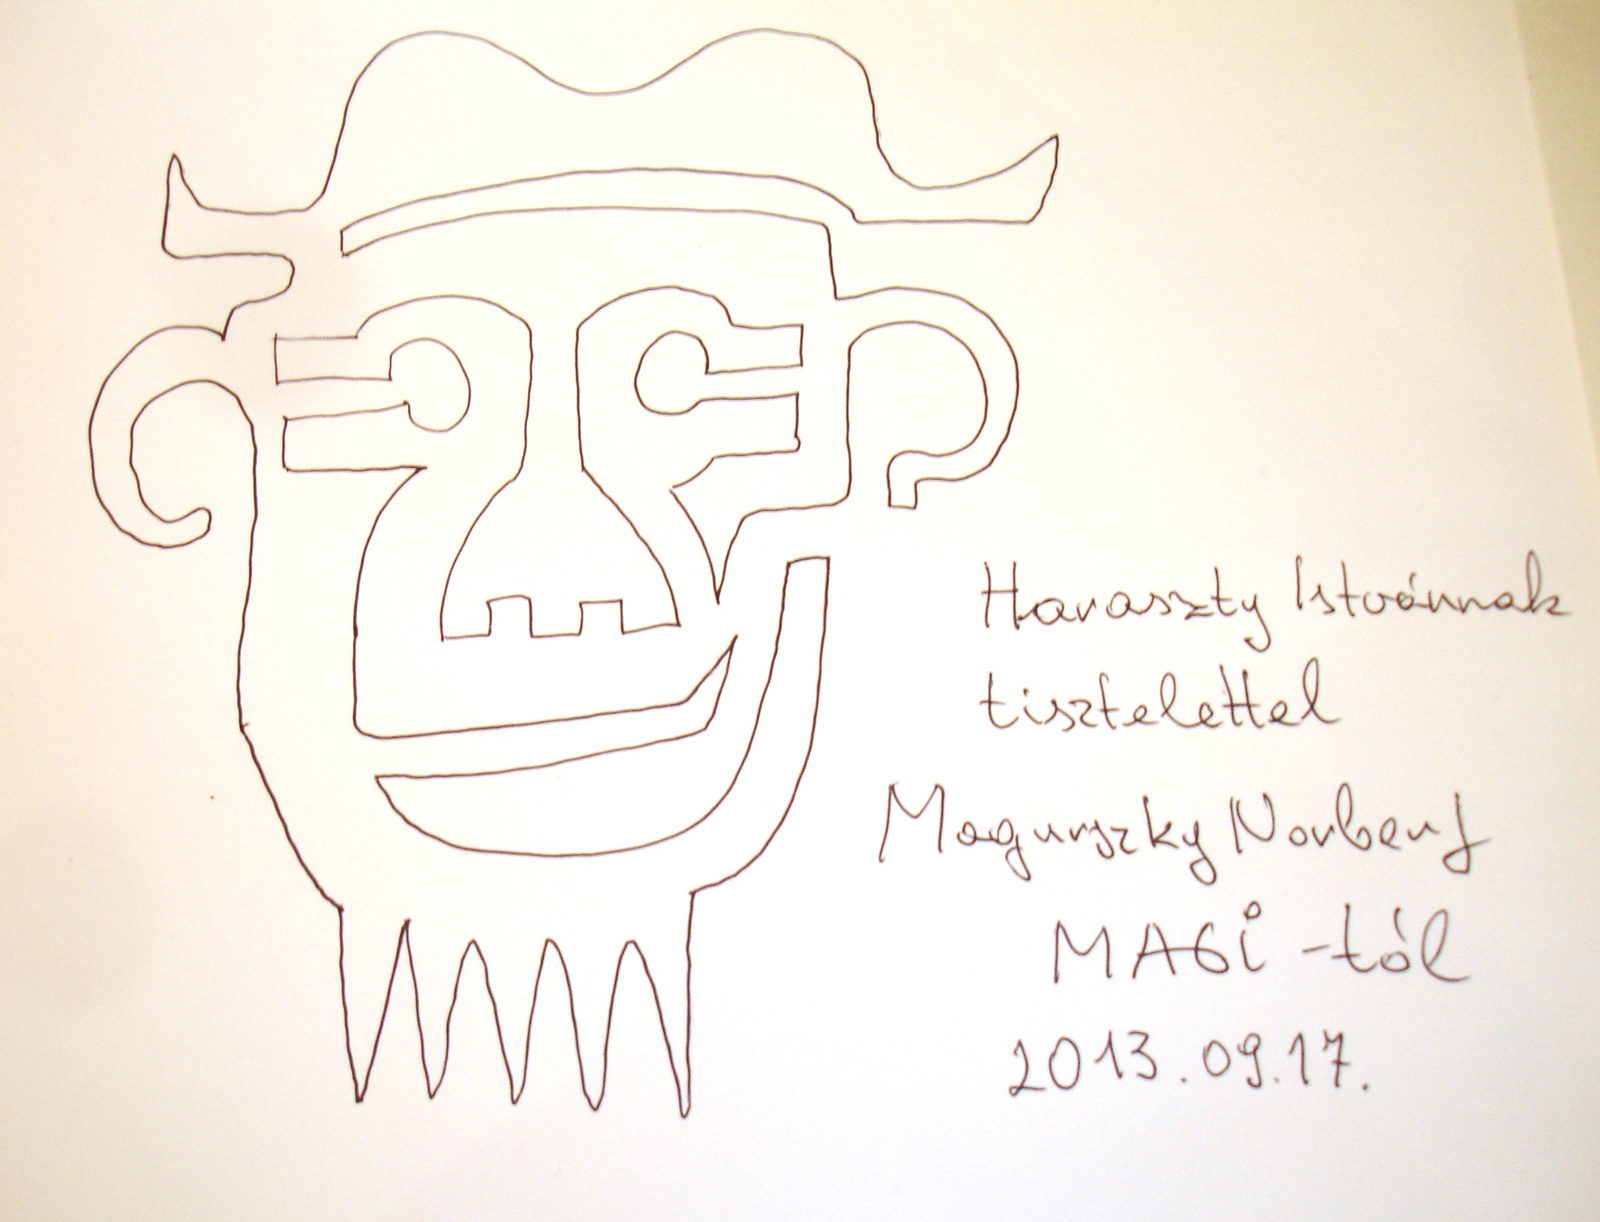 Haraszty Istvánnak
tisztelettel
Magurszky Norbert
MAGI -tól
2013.09.17.